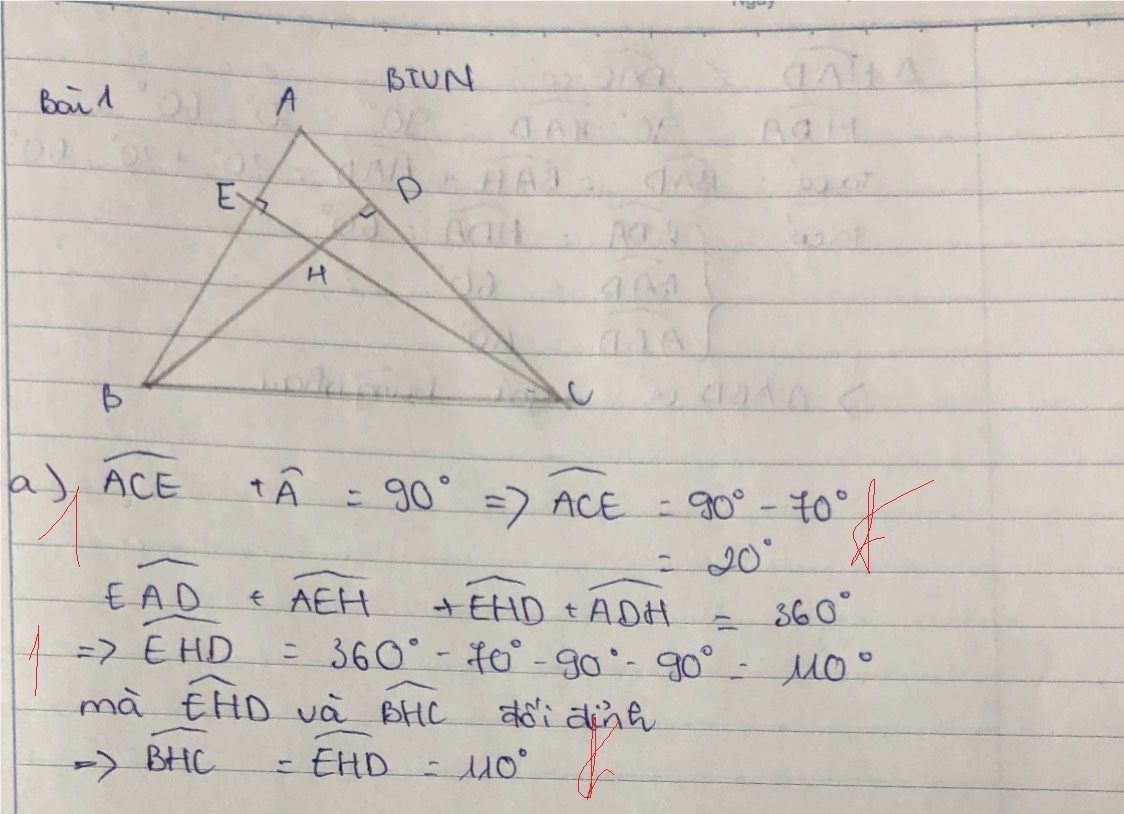 Ngày
BTVN
Bài 1
A
E
D
H
B
C
a) ACE + Â = 90° => ACE = 90° - 70°
= 20°
1
EAD + AEH + EHD + ADH = 360°
=> EHD = 360° - 70° - 90° - 90° = 110°
1
mà EHD và BHC đối đỉnh
=> BHC = EHD = 110°